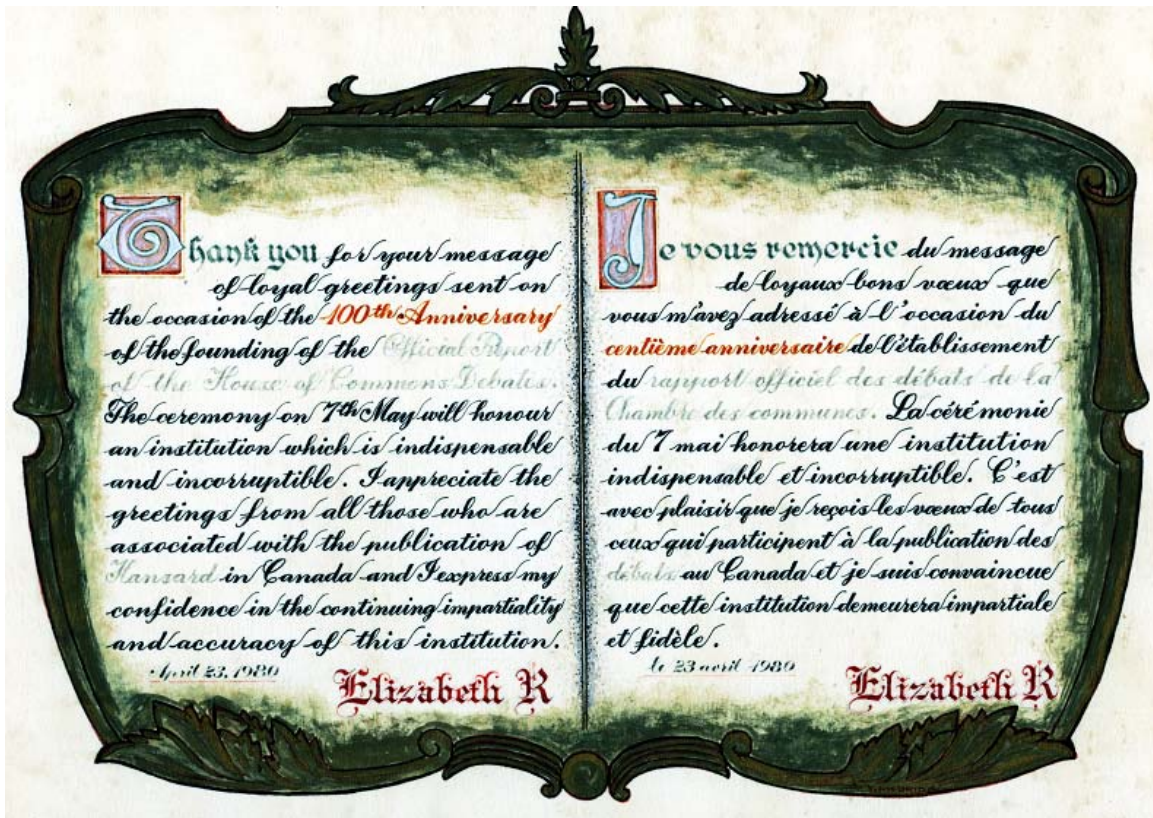 Thank you for your message
of loyal greetings sent on
the occasion of the 100th Anniversary
of the founding of the Official Report
of the House of Commons Debates.
The ceremony on 7th May will honour
an institution which is indispensable
and incorruptible. I appreciate the
greetings from all those who are
associated with the publication of
Hansard in Canada and I express my
confidence in the continuing impartiality
and accuracy of this institution.
April 23, 1980
Elizabeth R
Je vous remercie du message
de loyaux bons vœux que
vous m'avez adressé à l'occasion du
centième anniversaire de l'établissement
du rapport officiel des débats de la
Chambre des communes. La cérémonie
du 7 mai honorera une institution
indispensable et incorruptible. C'est
avec plaisir que je reçois les vœux de tous
ceux qui participent à la publication des
débats au Canada et je suis convaincue
que cette institution demeurera impartiale
et fidèle.
le 23 avril 1980
Elizabeth R